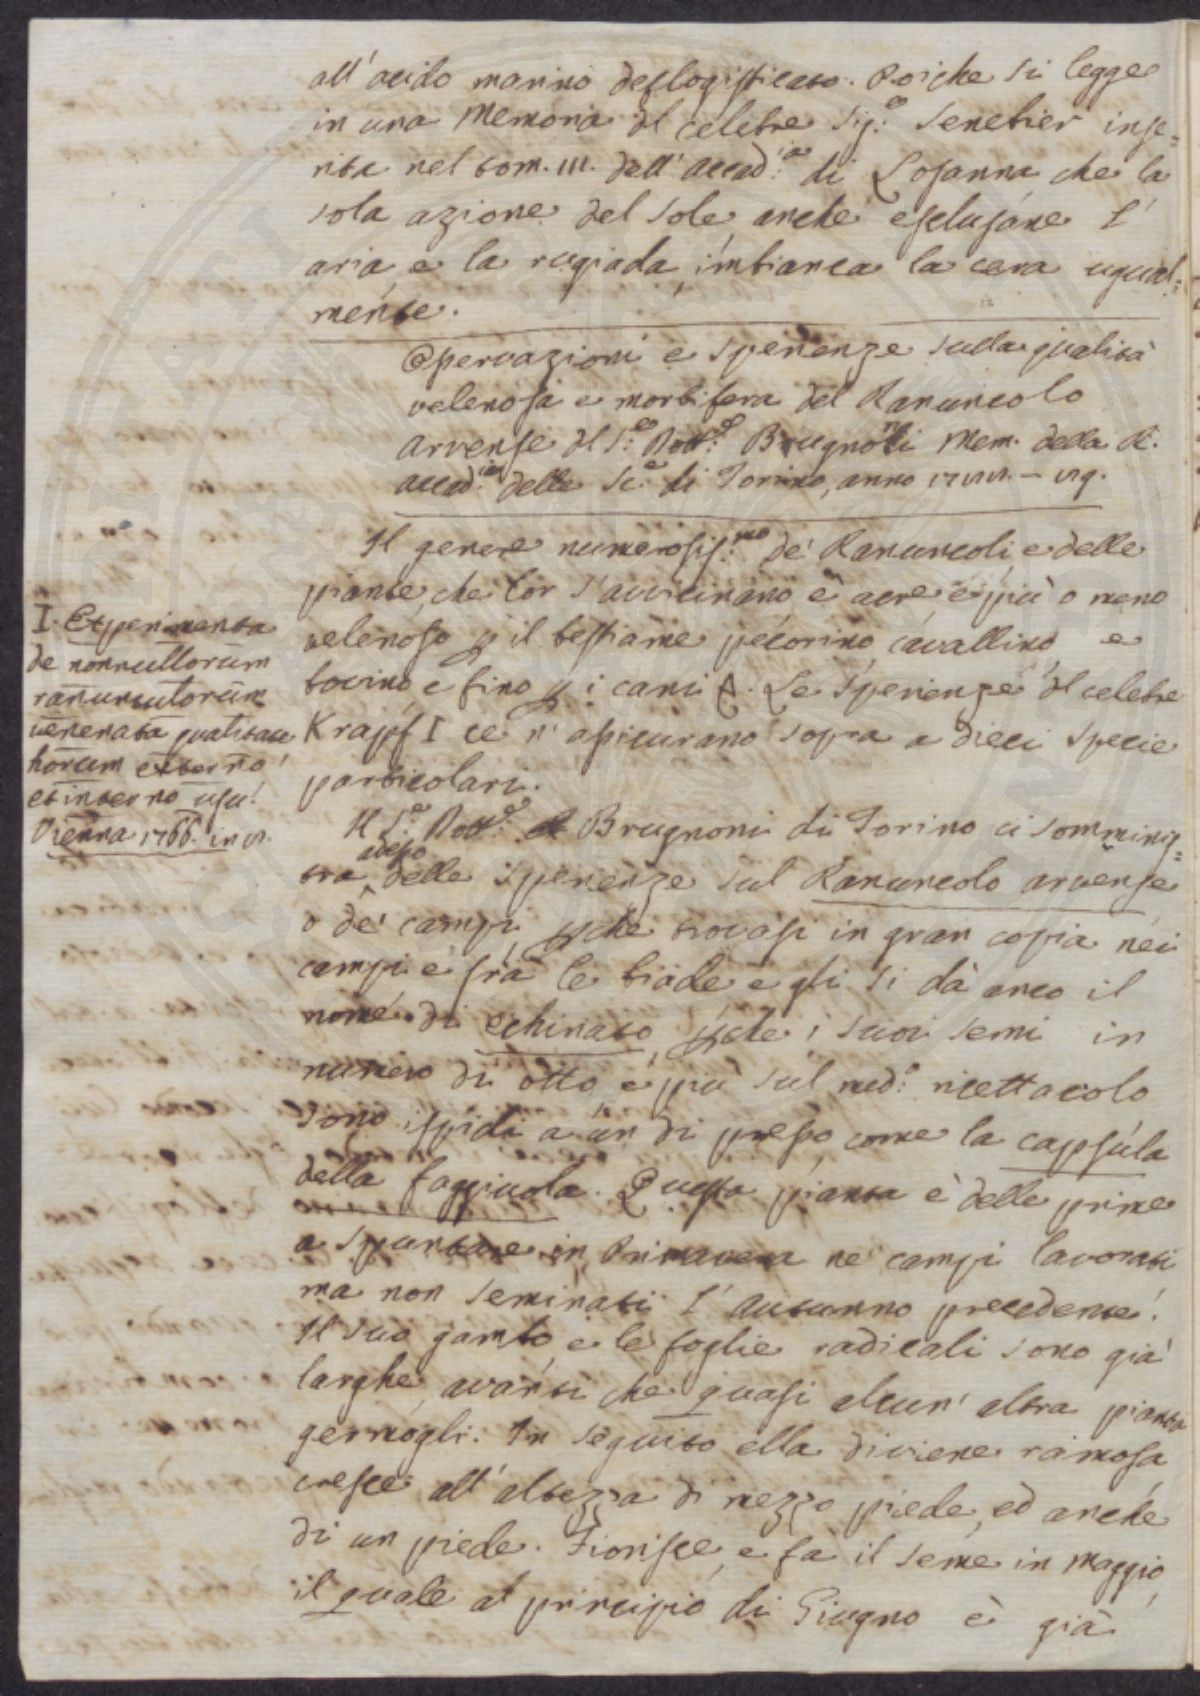 all'acido marino deflogisticato. Poiche si legge
in una Memoria del celebre Sig.e Senebier inse=
rita nel tom. III. dell'accad.ia di Losanna che la
sola azione del sole, anche esclusane l'
aria, e la rugiada, imbianca la cera ugual=
mente.
Osservazioni e sperienze sulla qualità
velenosa e morbifera del Ranuncolo
arvense del S.e Dott.e Brugnoni Mem. della R.
accad.ia delle Sc.e di Torino, anno
Il genere numerosiss.mo de' Ranuncoli, e delle
piante, che lor s'avvicinano è acre, e più o meno
velenoso p il bestiame pecorino, cavallino e
bovino, e fino p i cani. Le sperienze del celebre
Krapf I ce n'assicurano sopra a dieci specie
particolari.
I. Experimenta
de nonnullorum
ranunculorum
venenata qualitate
horum externo,
et interno usu.
Vienna 1766. in
Il S.e Dott.e Brugnoni di Torino ci somminis=
adesso
tra delle sperienze sul Ranuncolo arvense
o de' campi, pche trovasi in gran copia nei
campi e frà le biade e gli si dà anco il
nome di echinato, pche i suoi semi in
numero di otto, e più sul med.o ricettacolo
sono ispidi a un di presso come la capsula
della faggiuola. Questa pianta è delle prime
a spuntare in Primavera ne' campi lavorati
ma non seminati l'autunno precedente.
Il suo gambo e le foglie radicali sono già
larghe, avanti che quasi alcun'altra pianta
germogli. In seguito ella diviene ramosa
cresce all'altezza di mezzo piede, ed anche
di un piede. Fiorisce, e fà il seme in maggio,
il quale al principio di Giugno è già